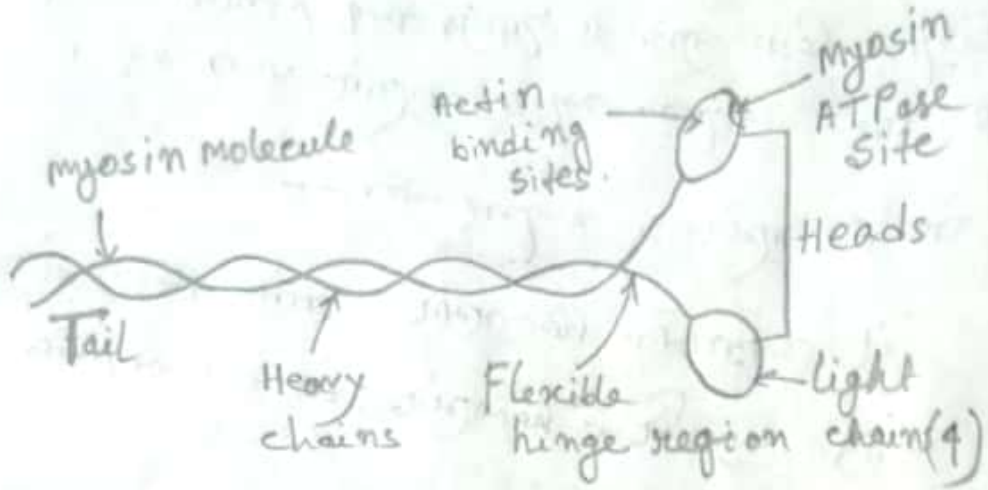 myosin molecule
Actin
binding
sites.
Myosin
ATPase
Site
Heads
Tail
Heavy
chains
Flexible
hinge region
light
chain(4)